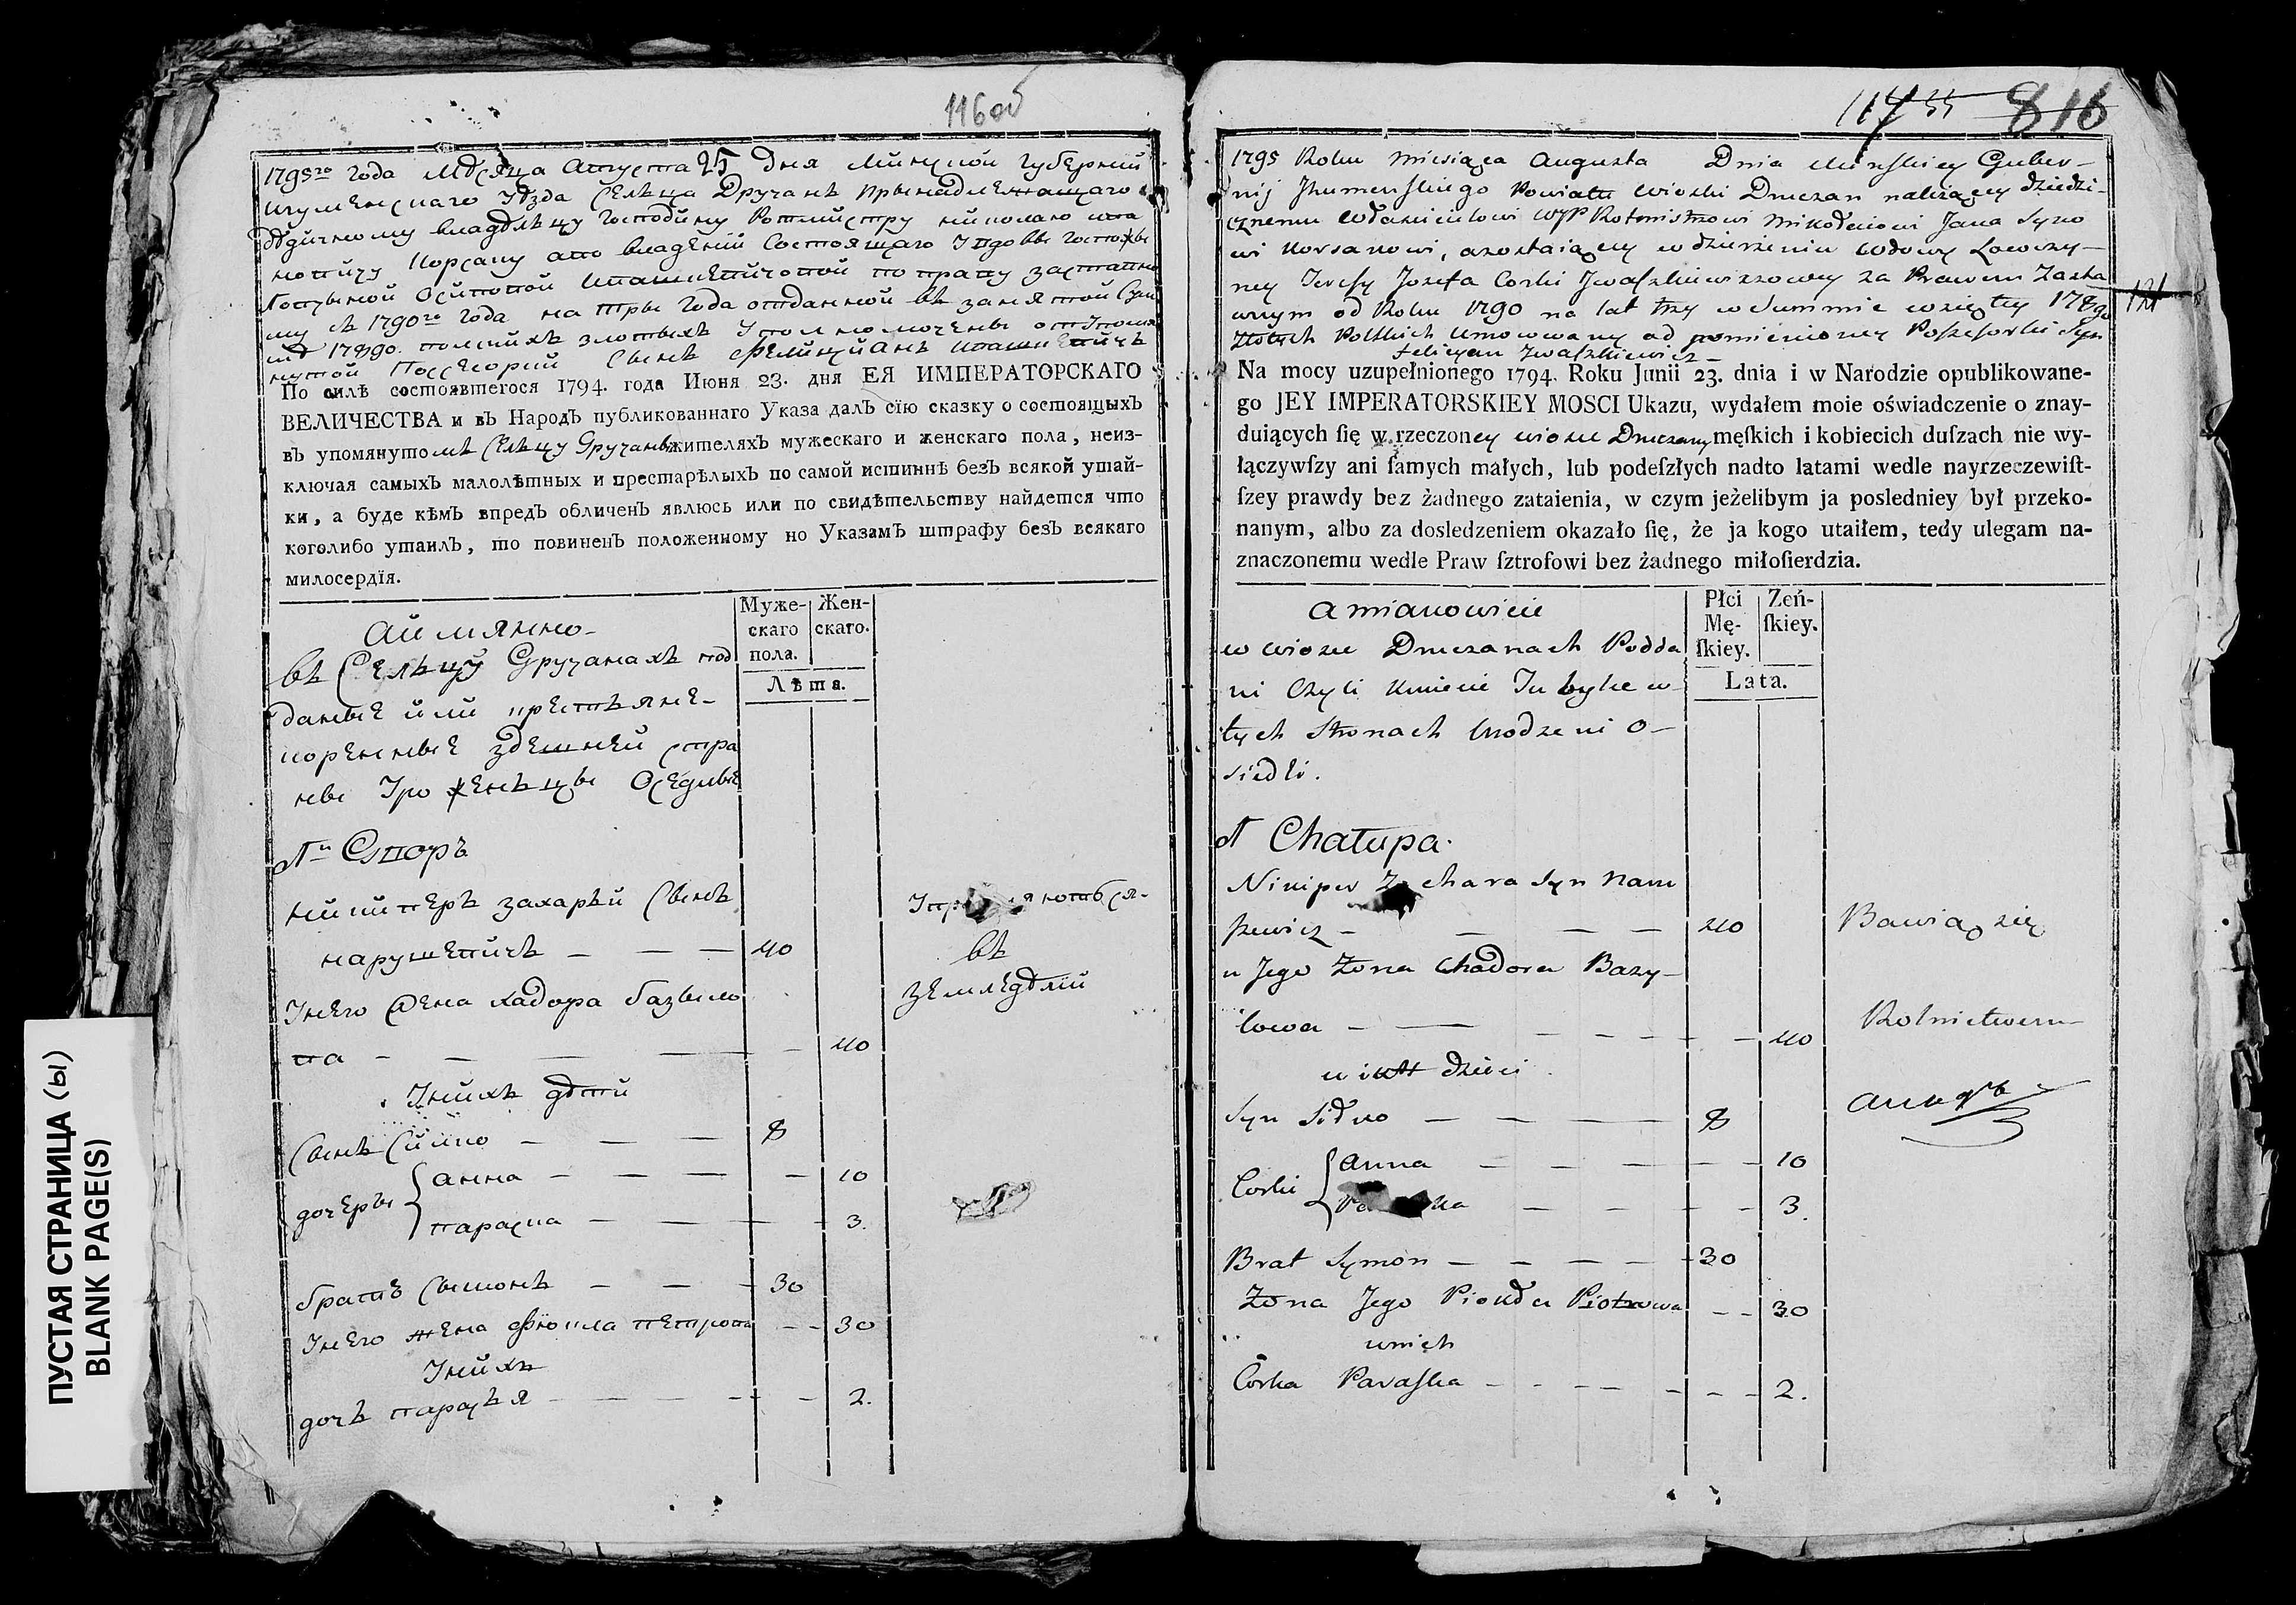 116об
1795го года Мѣсяца Августа 25 дня Минской Губернии
игуменскаго Уѣзда сельца Дручанъ принадлежащаго
дѣдичному владѣльцу Господину Ротмистру николаю ива
новичу Корсаку аво владѣнии Состоящаго Удовы Госпожи
Осиповой Ивашкевичовой по праву заставно
му съ 1790го года на тры года отданной въ занятой Сум
мѣ 17890 полскихъ злотыхъ Уполномоченъ отупомя
нутой Поссесорки Сынъ Фелициянъ Ивашкевичъ
По силѣ состоявшегося 1794. года Июня 23. дня ЕЯ ИМПЕРАТОРСКАГО
ВЕЛИЧЕСТВА и въ Народъ публикованнаго Указа далъ сїю сказку о состоящыхъ
въ упомянутомъ Сельцу Дручаны жителяхъ мужескаго и женскаго пола, неиз-
ключая самыхъ малолѣтныхъ и престарѣлыхъ по самой истиннѣ безъ всякой утай-
ки, а буде кѣмъ впредъ обличенъ явлюсь или по свидѣтельству найдется что
коголибо утаилъ, то повиненъ положенному но Указамъ штрафу безъ всякаго
милосердїя.
Муже-
скаго
пола.
Жен-
скаго.
Лѣта.
аймянно-
въ Сельцу Дручанахъ под
данные или крестьяне-
коренные здешней стра
ны Уроженьцы Оседлые
№ Дворъ
никиперъ захарѣй Сынъ
нарушевичъ — — — 40
Унего жена хадора базыле
ва — — — — 40
Унихъ дѣти
Сынъ Сидко — — — 8
дочеры { анна — — — — 10
параска — — — — 3.
братъ Сымонъ — — — 30
Унего жена Фiокла петрова — — 30
Унихъ
дочь парасья — — — — 2.
въ
земледѣлии
117 55 816
1795 Roku miesiąca Augusta Dnia Minskiey Guber-
nij Jhumenskiego Powiatu Wioski Druczan należącey dziedzi-
cznemu Wdaścicielowi WJP Rotmistrowi Mikołaiowi Jana Syno
wi Korsakowi, a zostaiącey w dzierżeniu Wdowy Łowczy-
ney Teresy Jozefa Corki Jwaszkiewiczowey za Prawem Zasta
wnym od Roku 1790 na lat trzy w Summie wziętey 17890
złotych Polskich Umocowany od pomienioney Posesorki Syn
Felicyan Jwaszkiewicz-
121
Na mocy uzupełnionego 1794. Roku Junii 23. dnia i w Narodzie opublikowane-
go JEY IMPERATORSKIEY MOSCI Ukazu, wydałem moie oświadczenie o znay-
duiących ſię w rzeczoney wiosce Druczany męſkich i kobiecich duſzach nie wy-
łączywſzy ani ſamych małych, lub podeſzłych nadto latami wedle nayrzeczewiſt-
ſzey prawdy bez żadnego zataienia, w czym jeżelibym ja posledniey był przeko-
nanym, albo za dosledzeniem okazało ſię, że ja kogo utaiłem, tedy ulegam na-
znaczonemu wedle Praw ſztrofowi bez żadnego miłoſierdzia.
Płci
Mę-
ſkiey.
Żeń-
ſkiey.
Lata.
a mianowicie
w wiosce Druczanach Podda
ni Czyli Kmiecie Tubylce w
tych Stronach Urodzeni O-
siedli.
№ Chałupa.
Nikiper chara Syn Naru
szewicz — — — — 40 Bawią się
u Jego Żona Chadora Bazy-
lowa — — — — 40 Rolnictwem
u ich dzieci
Syn Sidko — — — 8
Corki { Anna — — — — 10
ka — — — — 3.
Brat Symon — — — — 30
Żona Jego Piokła Piotrowa — — 30
u nich
Corka Paraska — — — — 2.
ПУСТАЯ СТРАНИЦА (Ы)
BLANK PAGE(S)